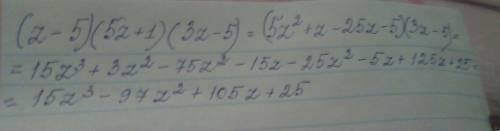 (x-5)(5x+1)(3x-5) = (5x²+x-25x-5)(3x-5)=
= 15x³+3x²-75x²-15x-25x²-5x+125x+25=
= 15x³-97x²+105x+25